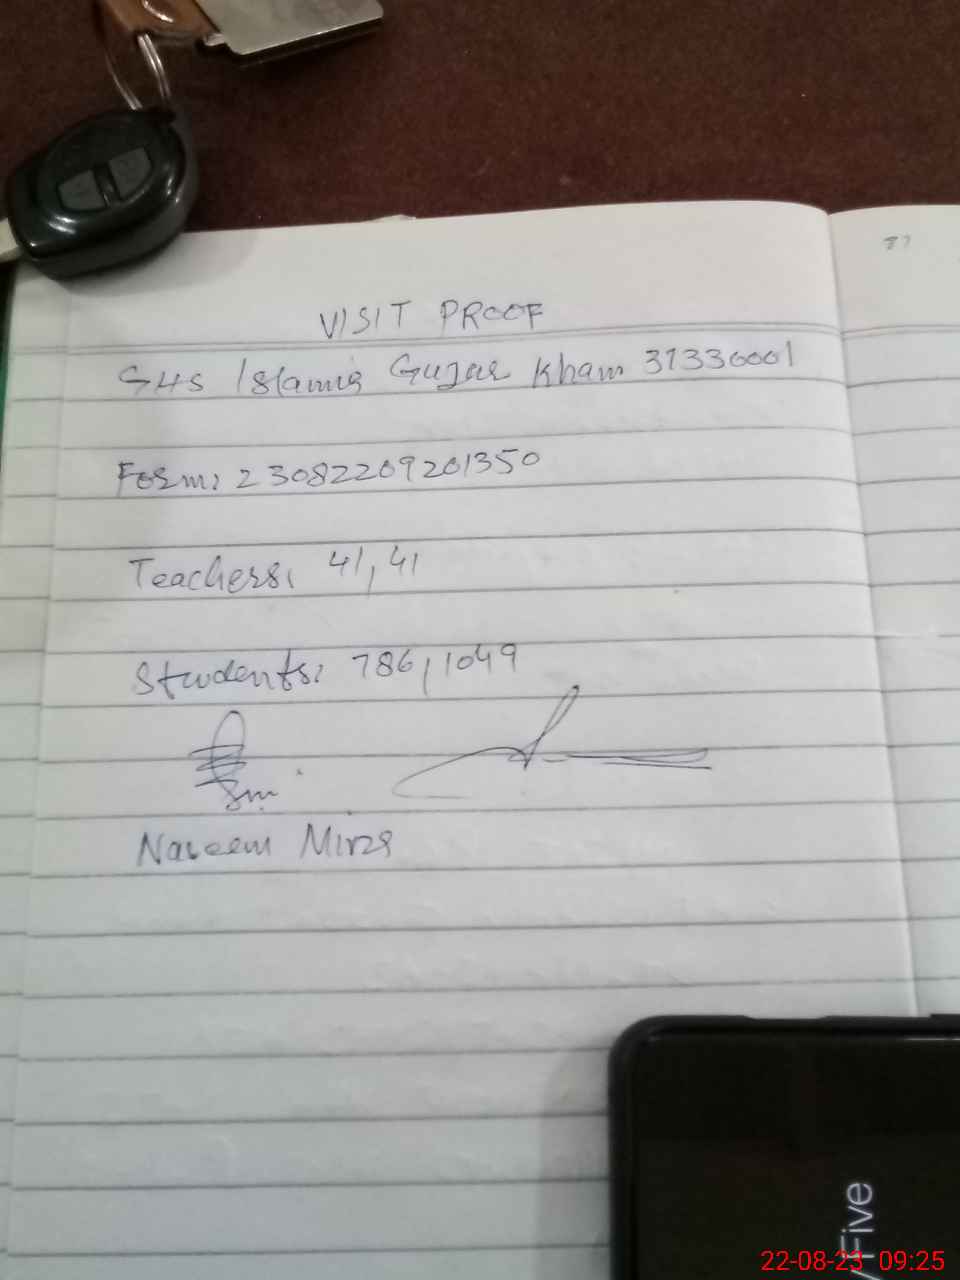 87
VISIT PROOF
GHS Islamia Gujar Kham 37330001
Form: 23082209201350
Teachers: 41, 41
Students: 786, 1049
Naseem Mirza
Five
22-08-23 09:25